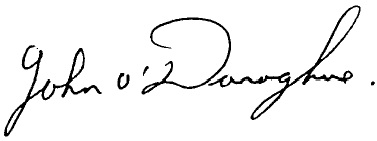 John O'Donoghue.